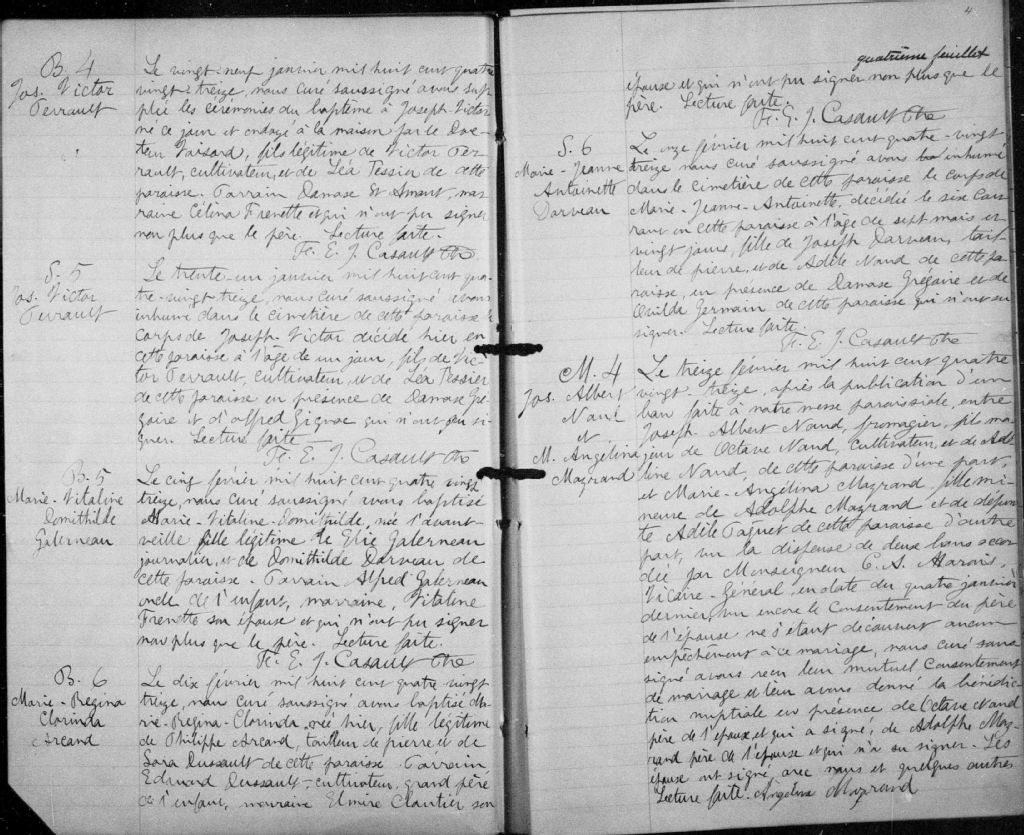 B. 4
Jos. Victor
Perrault
Le vingt-neuf janvier mil huit cent quatre
vingt-treize, nous curé soussigné avons sup
pléé les cérémonies du baptême à Joseph-Victor
né ce jour et ondoyé à la maison par le Doc-
teur Voisard, fils légitime de Victor Per
rault, cultivateur, et de Léa Tessier de cette
paroisse. Parrain Damase St Amant, mar
raine Célina Frenette et qui n'ont pu signer
non plus que le père. Lecture faite.
Fr. E. J. Casault Ptre
S. 5
Jos. Victor
Perrault
Le trente-un janvier mil huit cent qua
tre-vingt-treize, nous curé soussigné avons
inhumé dans le cimetière de cette paroisse le
corps de Joseph-Victor décédé hier en
cette paroisse à l'âge de un jour, fils de Vic
tor Perrault, cultivateur, et de Léa Tessier
de cette paroisse en présence de Damase Gré
goire et d'Alfred Gignac qui n'ont pu si
gner. Lecture faite
Fr. E. J. Casault Ptre
B. 5
Marie-Vitaline
Domithilde
Galerneau
Le cinq février mil huit cent quatre vingt
treize, nous curé soussigné avons baptisé
Marie-Vitaline-Domithilde, née l'avant-
veille fille légitime de Elie Galerneau
journalier, et de Domithilde Darveau de
cette paroisse. Parrain Alfred Galerneau
oncle de l'enfant, marraine, Vitaline
Frenette son épouse et qui n'ont pu signer
non plus que le père. Lecture faite.
Fr. E. J. Casault Ptre
B. 6
Marie-Régina
Clorinda
Arcand
Le dix février mil huit cent quatre vingt
treize, nous curé soussigné avons baptisé Ma
rie-Régina-Clorinda, née hier, fille légitime
de Philippe Arcand, tailleur de pierre et de
Sara Dussault de cette paroisse. Parrain
Edouard Dussault, cultivateur, grand père
de l'enfant, marraine Elmire Cloutier son
4
quatrième feuillet
épouse et qui n'ont pu signer non plus que le
père. Lecture faite.
Fr. E. J. Casault Ptre
S. 6
Marie-Jeanne
Antoinette
Darveau
Le onze février mil huit cent quatre-vingt
treize nous curé soussigné avons inhumé
dans le cimetière de cette paroisse le corps de
Marie-Jeanne-Antoinette, décédée le six cou
rant en cette paroisse à l'âge de sept mois et
vingt jours, fille de Joseph Darveau, tail-
leur de pierre, et de Adèle Naud de cette pa
roisse, en présence de Damase Grégoire et de
Onilda Germain de cette paroisse qui n'ont su
signer. Lecture faite
Fr. E. J. Casault Ptre
M. 4
Jos. Albert
Naud
et
M. Angélina
Mazrand
Le treize février mil huit cent quatre
vingt-treize, après la publication d'un
ban faite à notre messe paroissiale, entre
Joseph-Albert Naud, fromagier, fils ma
jeur de Octave Naud, cultivateur, et de Adé
line Naud, de cette paroisse d'une part,
et Marie-Angélina Mazrand, fille mi-
neure de Adolphe Mazrand et de défun
te Adèle Paquet de cette paroisse d'autre
part, vu la dispense de deux bans accor
dée par Monseigneur C. A. Marois,
Vicaire-Général, en date du quatre janvier
dernier, vu encore le consentement du père
de l'épouse ne s'étant découvert aucun
empêchement à ce mariage, nous curé sous
signé avons reçu leur mutuel consentement
de mariage et leur avons donné la bénédic
tion nuptiale en présence de Octave Naud
père de l'époux et qui a signé, de Adolphe Maz
rand père de l'épouse et qui n'a su signer. Les
époux ont signé, avec nous et quelques autres
Lecture faite. Angélina Mazrand